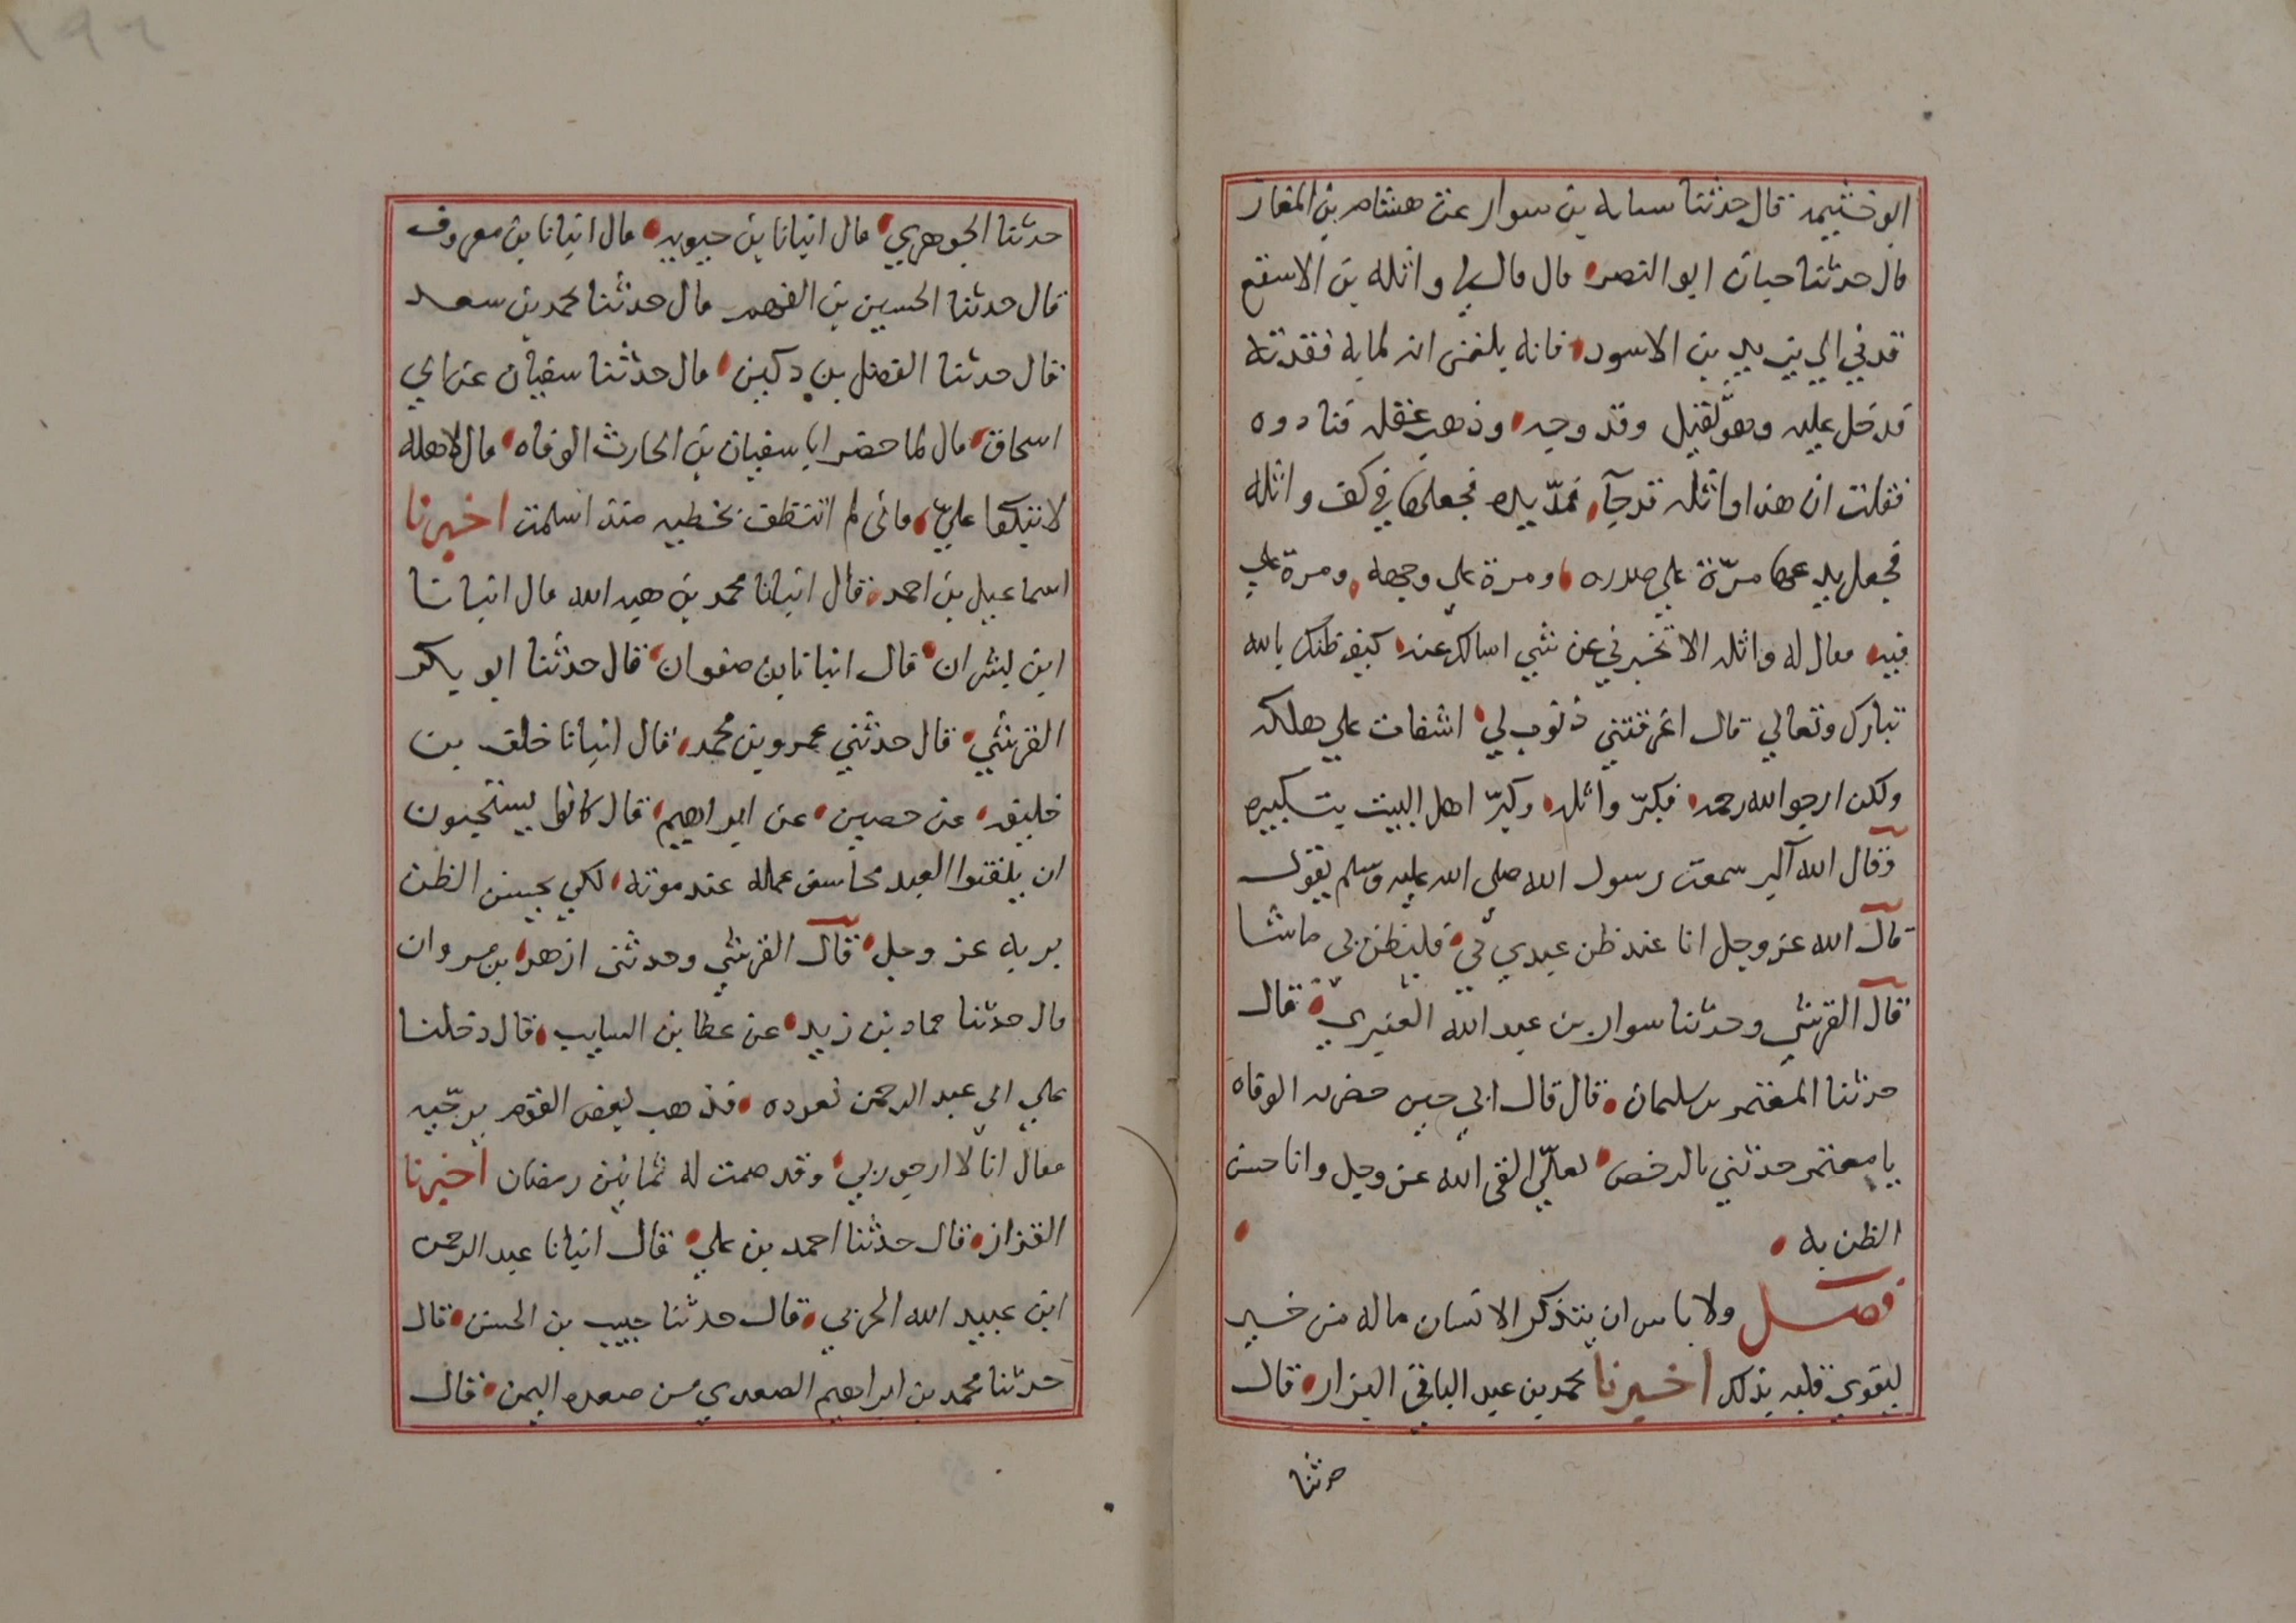 ابو خثيمه قال حدثنا سبابه بن سوار عن هشام بن الغاز
قال حدثنا حبان ابو النصر قال قال لي واثله بن الاسقع
قدني الي يزيد بن الاسود فانه بلغني انه لمابه فقدته
فدخل عليه وهو ثقيل وقد وجه وذهب عقله فنادوه
فقلت ان هذا واثله قد جآ فمدّ يده فجعلها في كف واثله
فجعل يدعها مرّة علي صدره ومرة علي وجهه ومرة علي
فيه فقال له واثله الا تخبرني عن شي اسالك عنه كيف ظنك بالله
تبارك وتعالي قال اغرقتني ذنوب لي اشفات علي هلكه
ولكن ارجو الله رحمه فكبّر واثله وكبّر اهل البيت بتكبيره
وقال الله اكبر سمعت رسول الله صلى الله عليه وسلم يقول
قال الله عز وجل انا عند ظن عبدي بي فليظن بي ماشا
قال القرشي وحدثنا سوار بن عبد الله العنبري قال
حدثنا المعتمر بن سليمان قال قال ابي حين حضرته الوفاه
يا معتمر حدثني بالرخص لعلّي القى الله عز وجل وانا حسن
الظن به
فصل ولا باس ان يتذكر الانسان ماله من خير
ليقوي قلبه بذلك اخبرنا محمد بن عبد الباقي البزار قال
حدثنا
١٩٦
حدثنا الجوهري قال انبانا بن حيويه قال انبانا بن معروف
قال حدثنا الحسين بن الفهم قال حدثنا محمد بن سعد
قال حدثنا الفضل بن دكين قال حدثنا سفيان عن ابي
اسحاق قال لما حضر ابا سفيان بن الحارث الوفاه قال لاهله
لا تبكوا عليّ فاني لم اتنطف بخطيه منذ اسلمت اخبرنا
اسماعيل بن احمد قال انبانا محمد بن هبه الله قال انبانا
ابن بشران قال انبانا بن صفوان قال حدثنا ابو بكر
القرشي قال حدثني عمرو بن محمد قال انبانا خلف بن
خليفه عن حصين عن ابراهيم قال كانوا يستحبون
ان يلقنوا العبد محاسن عمله عند موته لكي يحسن الظن
بربه عز وجل قال القرشي وحدثني ازهر بن مروان
قال حدثنا حماد بن زيد عن عطا بن السايب قال دخلنا
علي ابي عبد الرحمن نعوده فذهب بعض القوم يرجّيه
فقال انا لا ارجو ربي وقد صمت له ثمانين رمضان اخبرنا
القزاز قال حدثنا احمد بن علي قال انبانا عبد الرحمن
ابن عبيد الله الحربي قال حدثنا حبيب بن الحسن قال
حدثنا محمد بن ابراهيم الصعدي من صعده اليمن قال